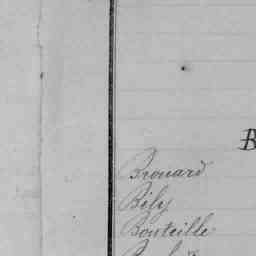 B
Brouard
Bély
Bouteille